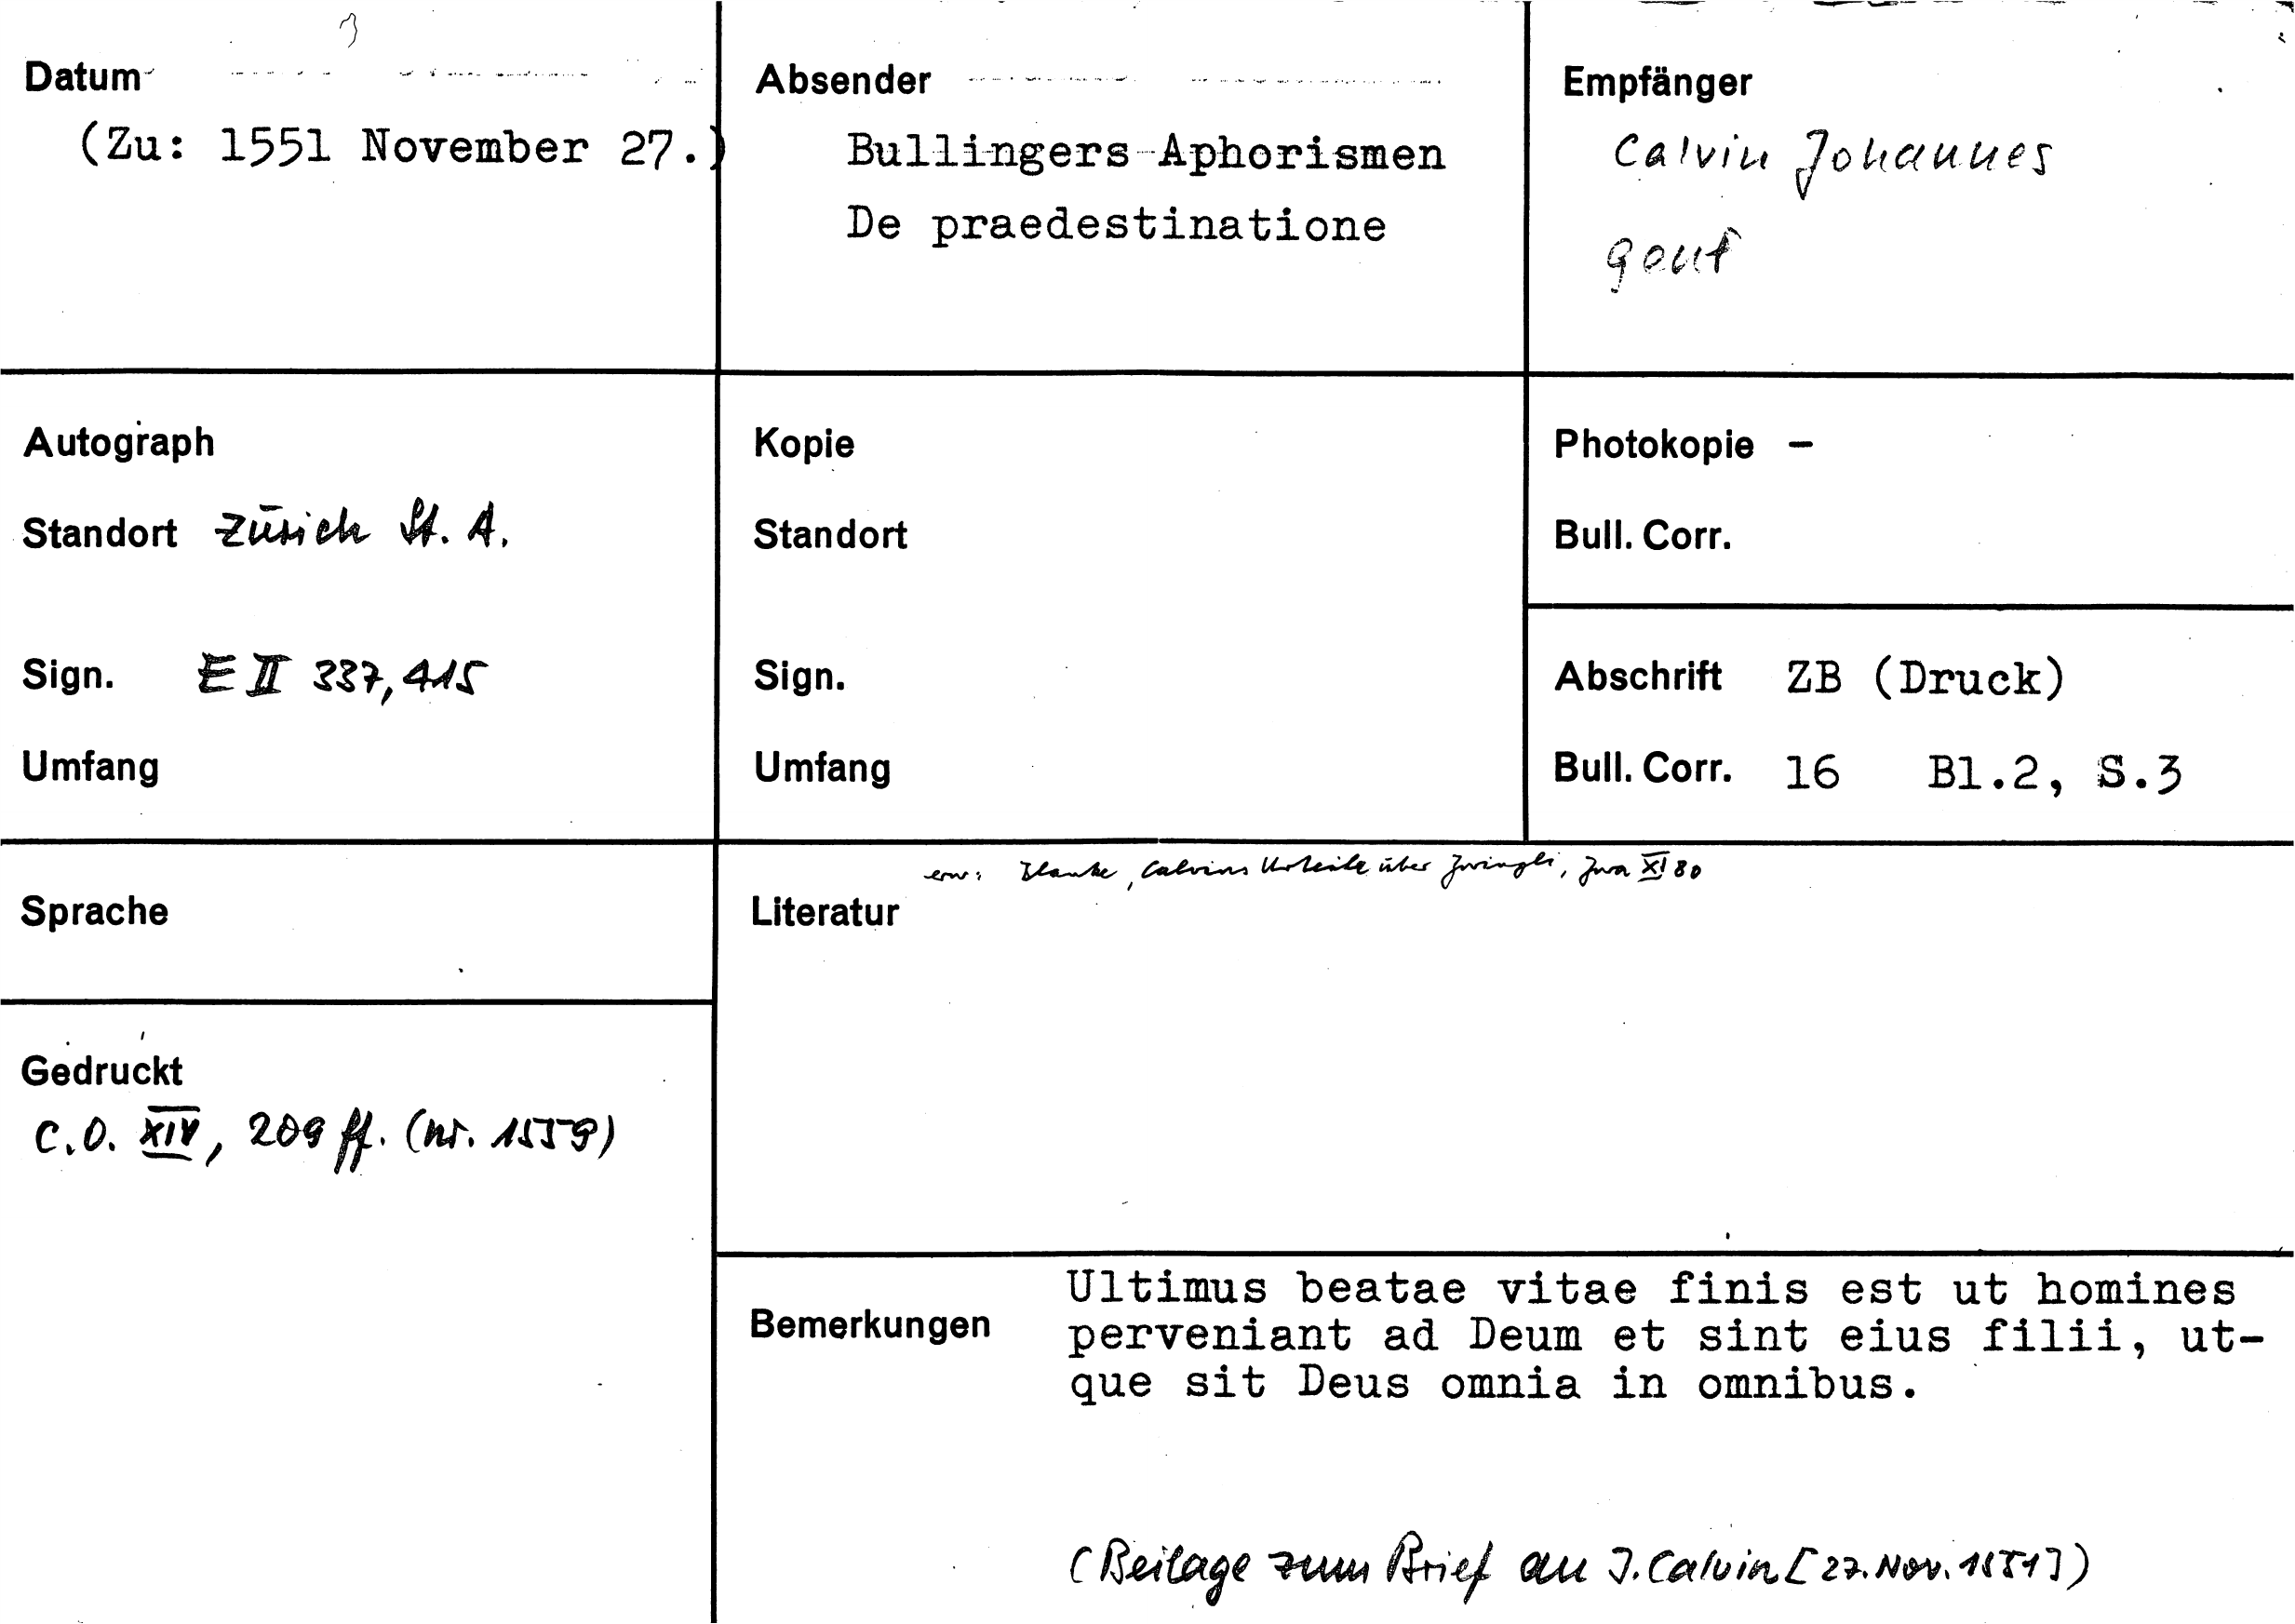 Datum
(Zu: 1551 November 27.)
Absender
Bullingers Aphorismen
De praedestinatione
Empfänger
Calvin Johannes
Genf
Autograph
Standort Zürich St. A.
Sign. E II 337, 415
Umfang
Kopie
Standort
Sign.
Umfang
Photokopie -
Bull. Corr.
Abschrift ZB (Druck)
Bull. Corr. 16 Bl.2, S.3
Sprache
Gedruckt
C.O. XIV, 209 ff. (Nr. 1559)
erw: Blanke, Calvins Urteile über Zwingli, Zwa XI 80
Literatur
Bemerkungen
Ultimus beatae vitae finis est ut homines
perveniant ad Deum et sint eius filii, ut-
que sit Deus omnia in omnibus.
(Beilage zum Brief an J. Calvin [27. Nov. 1551])